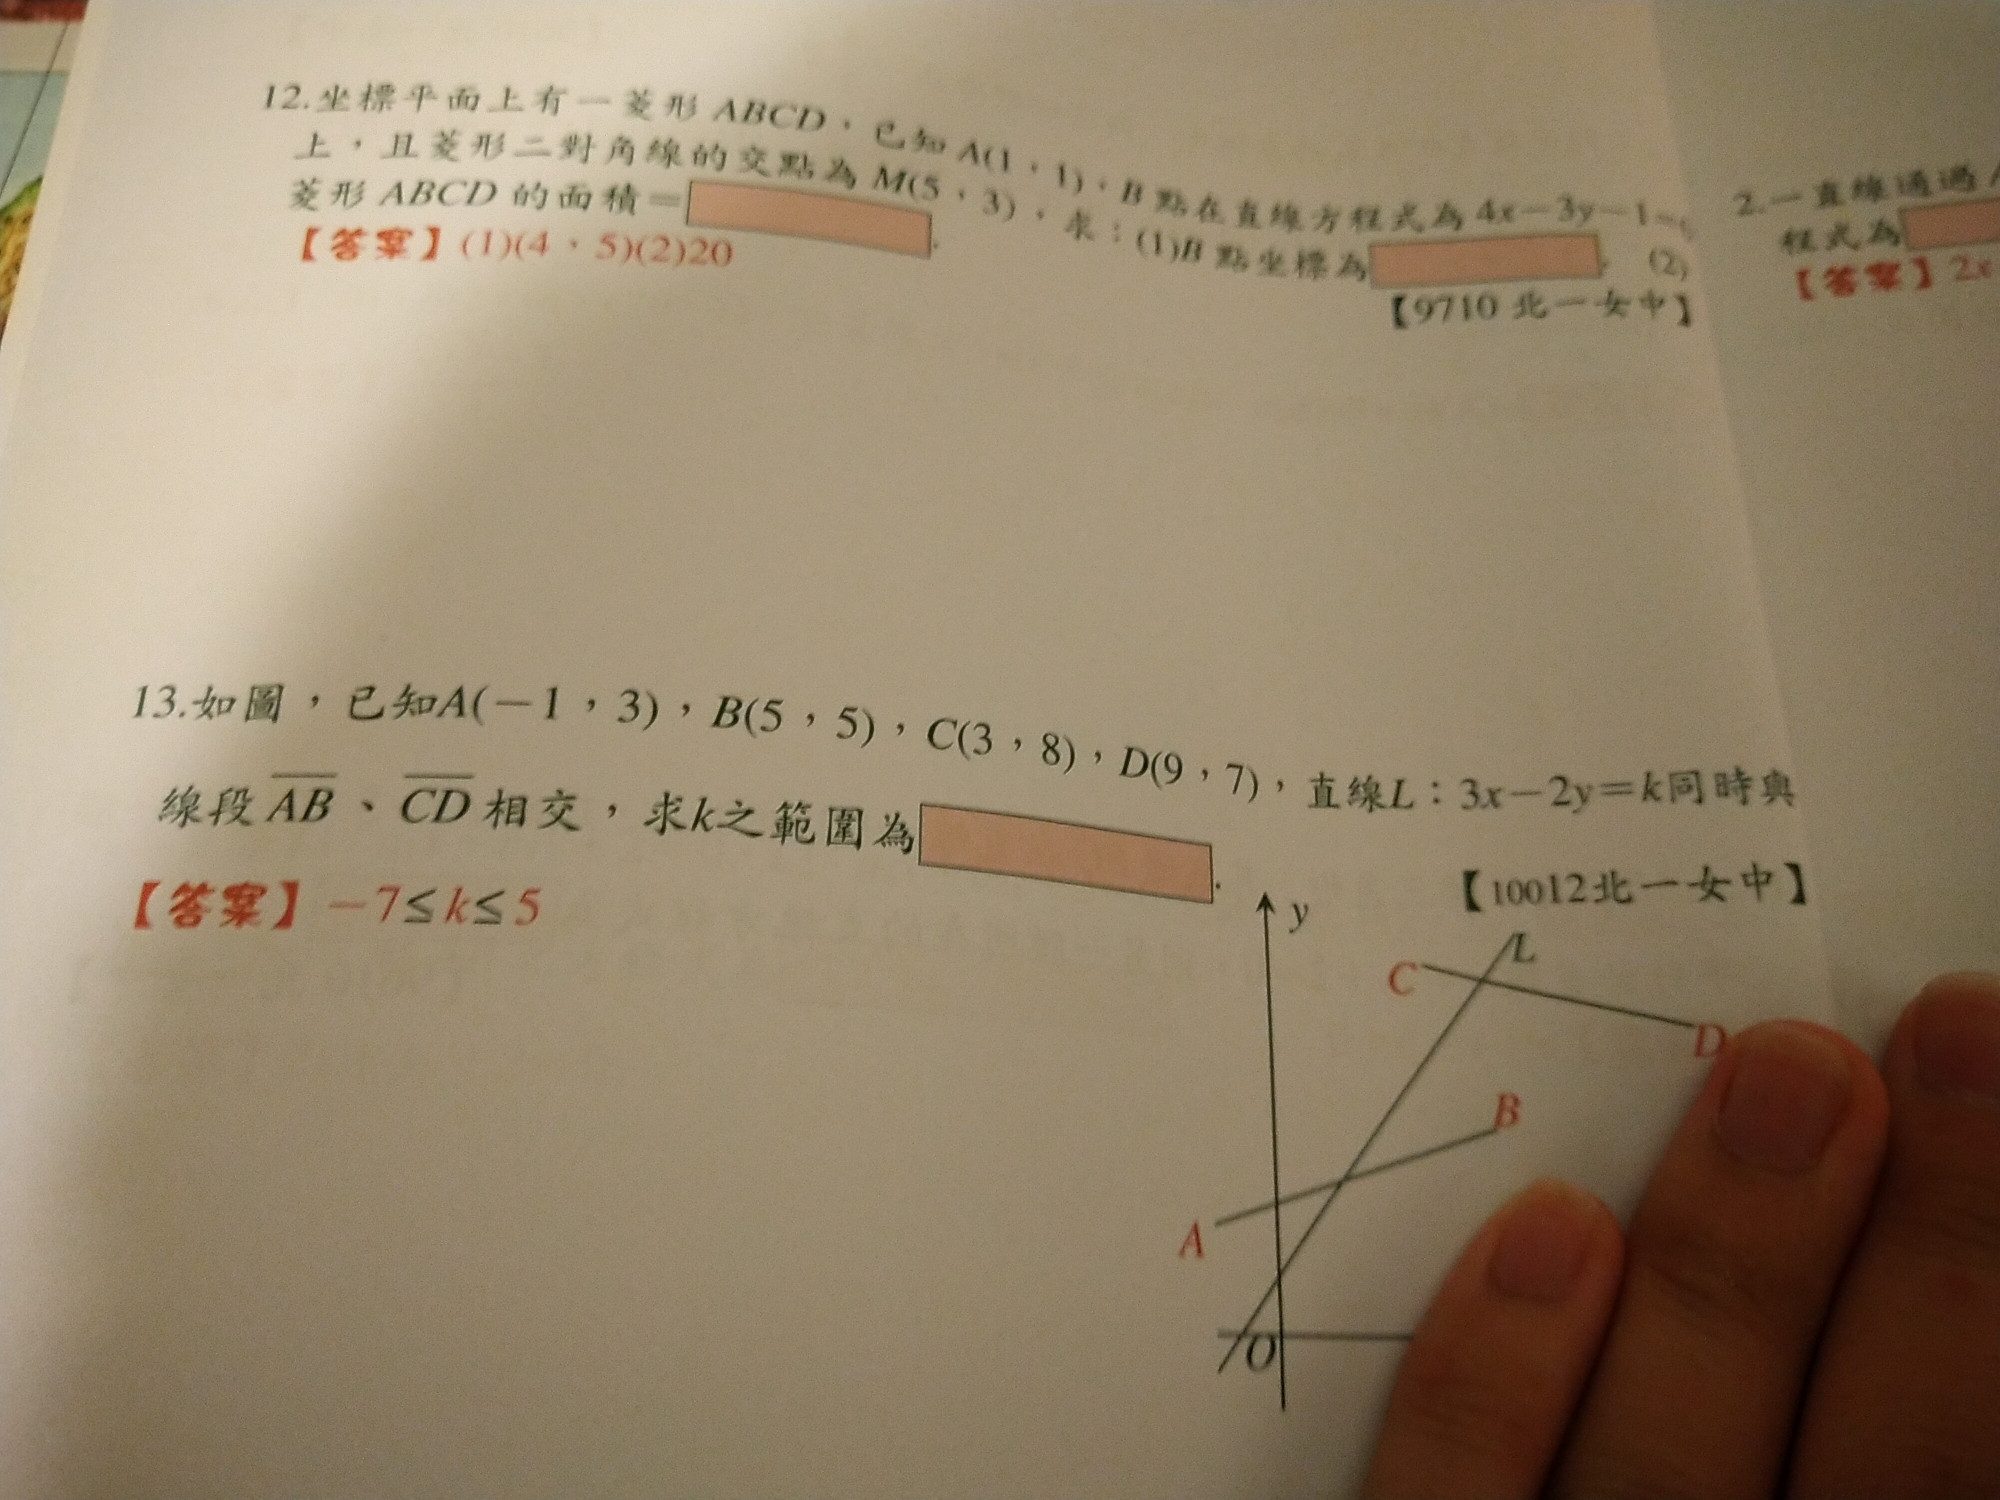 12.坐標平面上有一菱形 ABCD，已知 A(1，1)，B 點在直線方程式為 4x－3y－1＝
上，且菱形二對角線的交點為 M(5，3)，求：(1)B 點坐標為 (2)
菱形 ABCD 的面積＝ .
【答案】(1)(4，5)(2)20
【9710 北一女中】
13.如圖，已知A(－1，3)，B(5，5)，C(3，8)，D(9，7)，直線L：3x－2y＝k同時與
線段 AB、CD 相交，求k之範圍為 .
【答案】－7≤k≤5
【10012北一女中】
y
L
C
D
B
A
O
2.一直線通過
程式為
【答案】2x